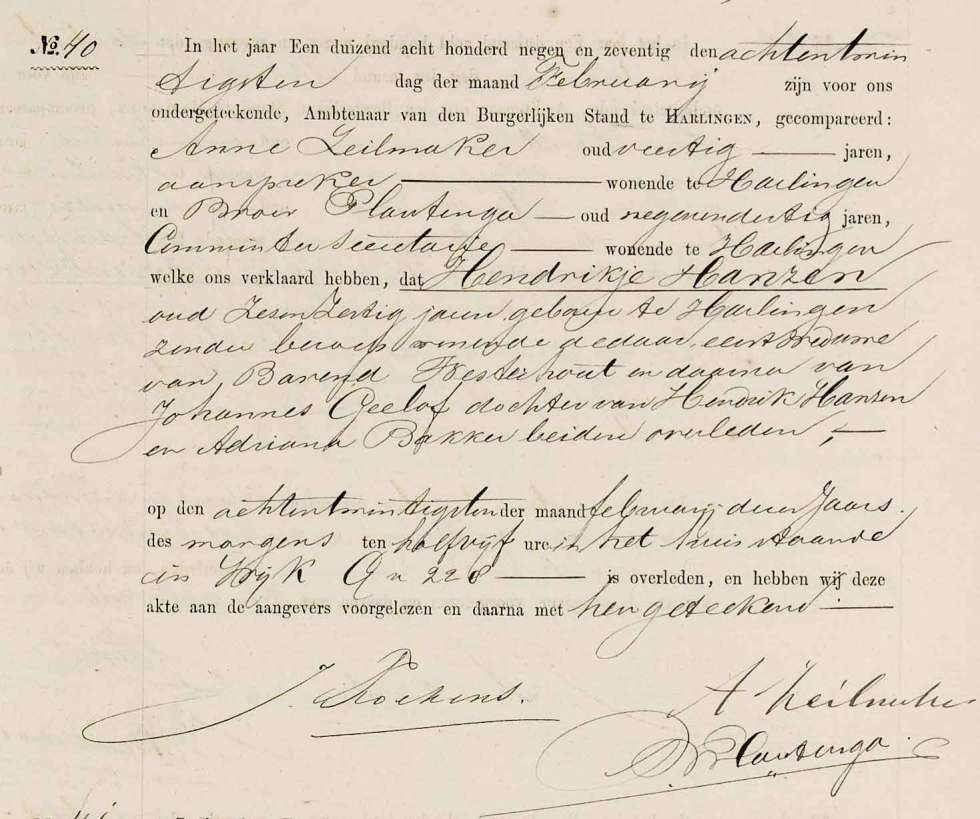 No. 40
In het jaar Een duizend acht honderd negen en zeventig den achtentwin
tigsten dag der maand Februarij zijn voor ons
ondergeteekende, Ambtenaar van den Burgerlijken Stand te HARLINGEN, gecompareerd:
Anne Zeilmaker oud veertig jaren,
aanspreker wonende te Harlingen
en Broer Plantenga oud negenendertig jaren,
Commies ter Secretarie wonende te Harlingen
welke ons verklaard hebben, dat Hendrikje Hanzen
oud zesenzestig jaren geboren te Harlingen
zonder beroep wonende aldaar, eerst weduwe
van Barend Westerhout en daarna van
Johannes Geelof dochter van Hendrik Hanzen
en Adriana Bakker beiden overleden,
op den achtentwintigsten der maand februarij dezes Jaars
des morgens ten half vijf ure in het huis staande
in Wijk G n 228 is overleden, en hebben wij deze
akte aan de aangevers voorgelezen en daarna met hen geteekend.
A Zeilmaker
B Plantenga.